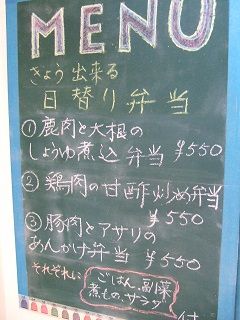 MENU
きょう出来る
日替り弁当
①鹿肉と大根の
しょうゆ煮込弁当 ¥550
②鶏肉の甘酢炒め弁当
¥550
③豚肉とアサリの
あんかけ弁当 ¥550
それぞれに
ごはん、副菜
煮もの、サラダ
付